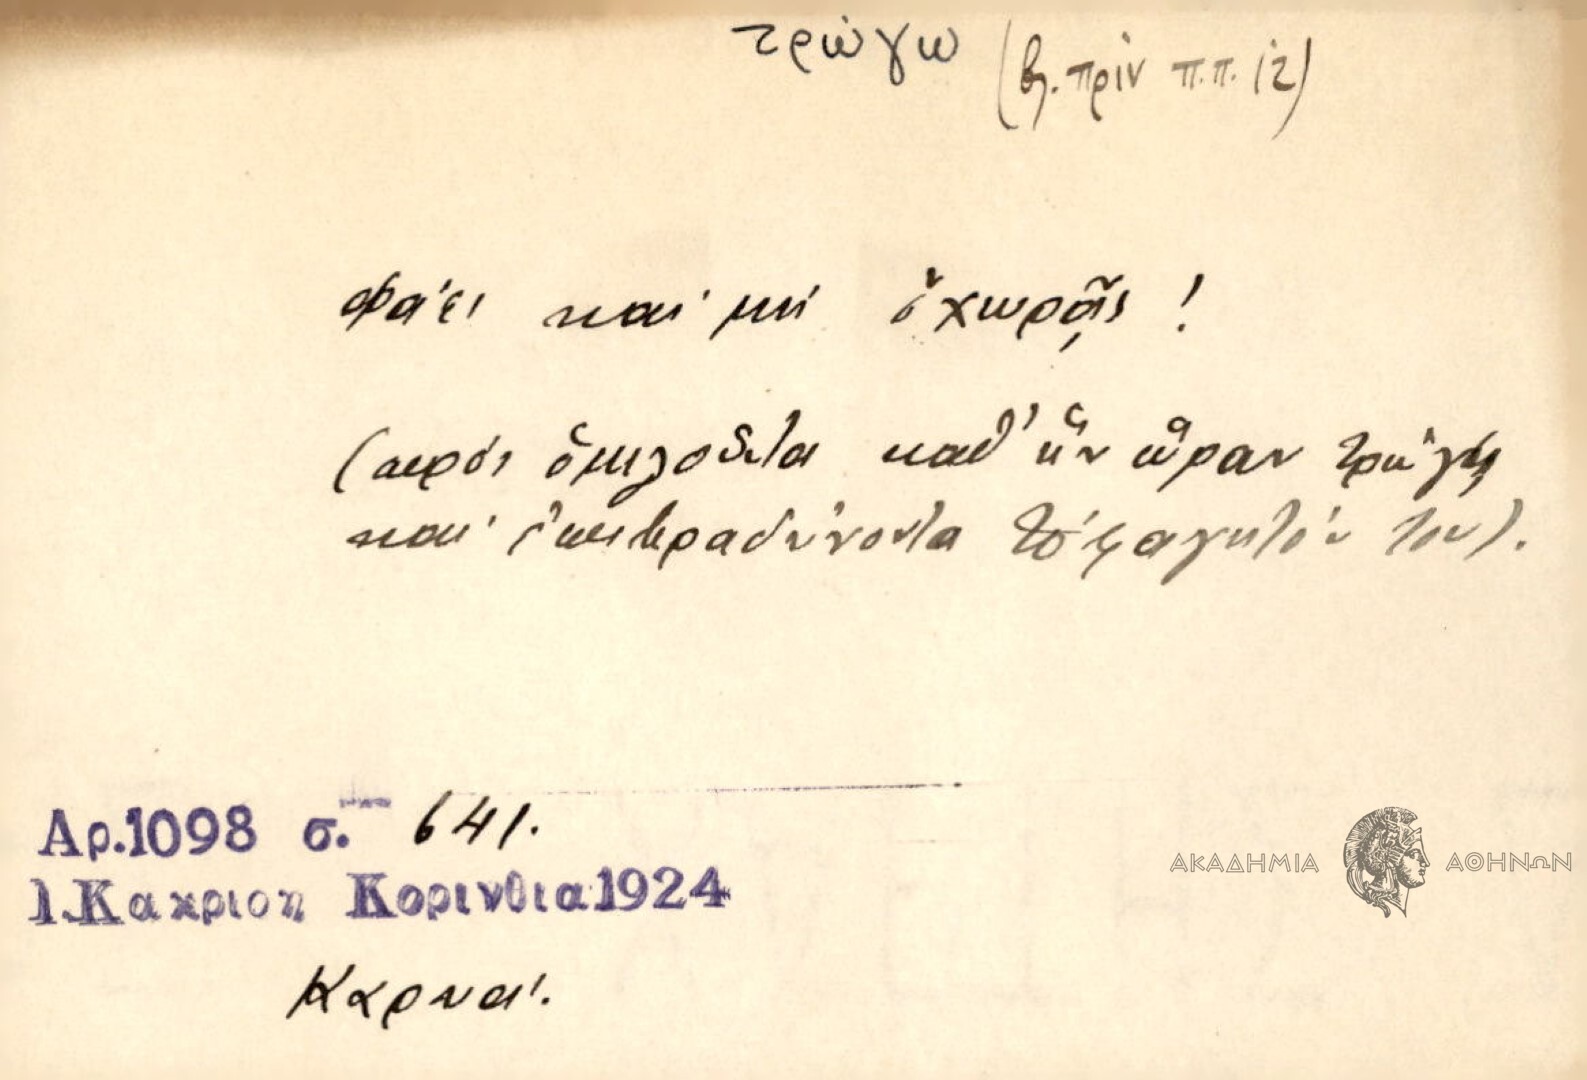 τρώγω (βλ. πρὶν π.π. 12)
Φάει καί μή ὀχωρᾷς !
(πρός ὁμιλοῦντα καθ' ἥν ὥραν τρώγει
καί ἐπιβραδύνοντα τό φαγητόν του).
Αρ.1098 σ. 641.
Ι.Κακριδη Κορινθια 1924
Καρυαί.
ΑΚΑΔΗΜΙΑ ΑΘΗΝΩΝ